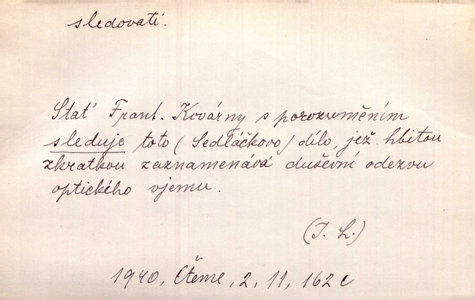 sledovati.
Stať Frant. Kovárny s porozuměním
sleduje toto (Sedláčkovo) dílo, jež hbitou
zkratkou zaznamenává duševní odezvu
optického vjemu.
(J. L.)
1940, Čteme, 2, 11, 162 c